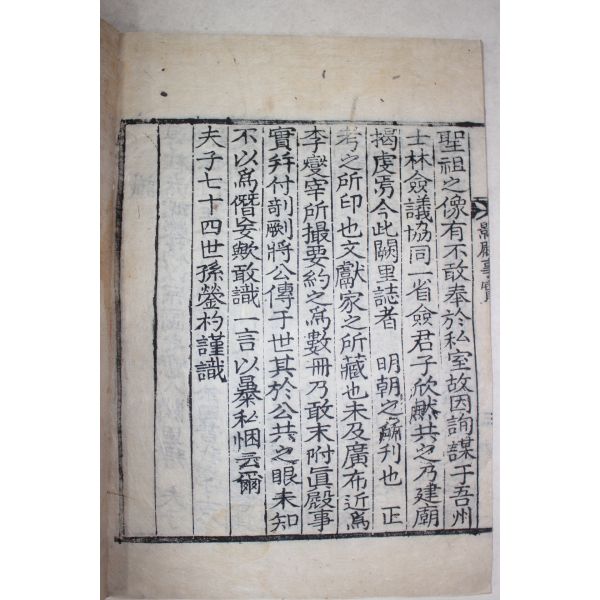 聖祖之像有不敢奉於私室故因詢謀于吾州
士林僉議協同一省僉君子欣然共之乃建廟
揭虔焉今此闕里誌者 明朝之所刊也 正
考之所印也文獻家之所藏也未及廣布近爲
李燮宰所撮要約之爲數冊乃敢末附眞殿事
實幷付剞劂將公傳于世其於公共之眼未知
不以爲僭妄歟敢識一言以暴私悃云爾
夫子七十四世孫 杓謹識
影殿事實